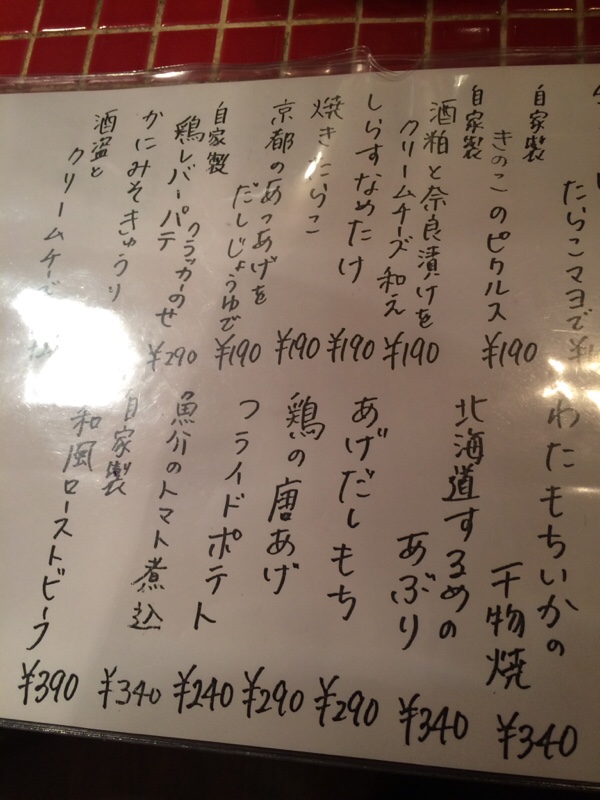 たらこマヨで
自家製
きのこのピクルス
¥190
自家製
酒粕と奈良漬けを
クリームチーズ和え
¥190
しらすなめたけ
¥190
焼きたらこ
¥190
京都のあつあげを
だしじょうゆで
¥190
自家製
鶏レバーパテ
クラッカーのせ
¥290
かにみそきゅうり
酒盗と
クリームチーズ
わたもちいかの
干物焼
¥340
北海道するめの
あぶり
¥340
あげだしもち
¥290
鶏の唐あげ
¥290
フライドポテト
¥240
魚介のトマト煮込
¥340
自家製
和風ローストビーフ
¥390